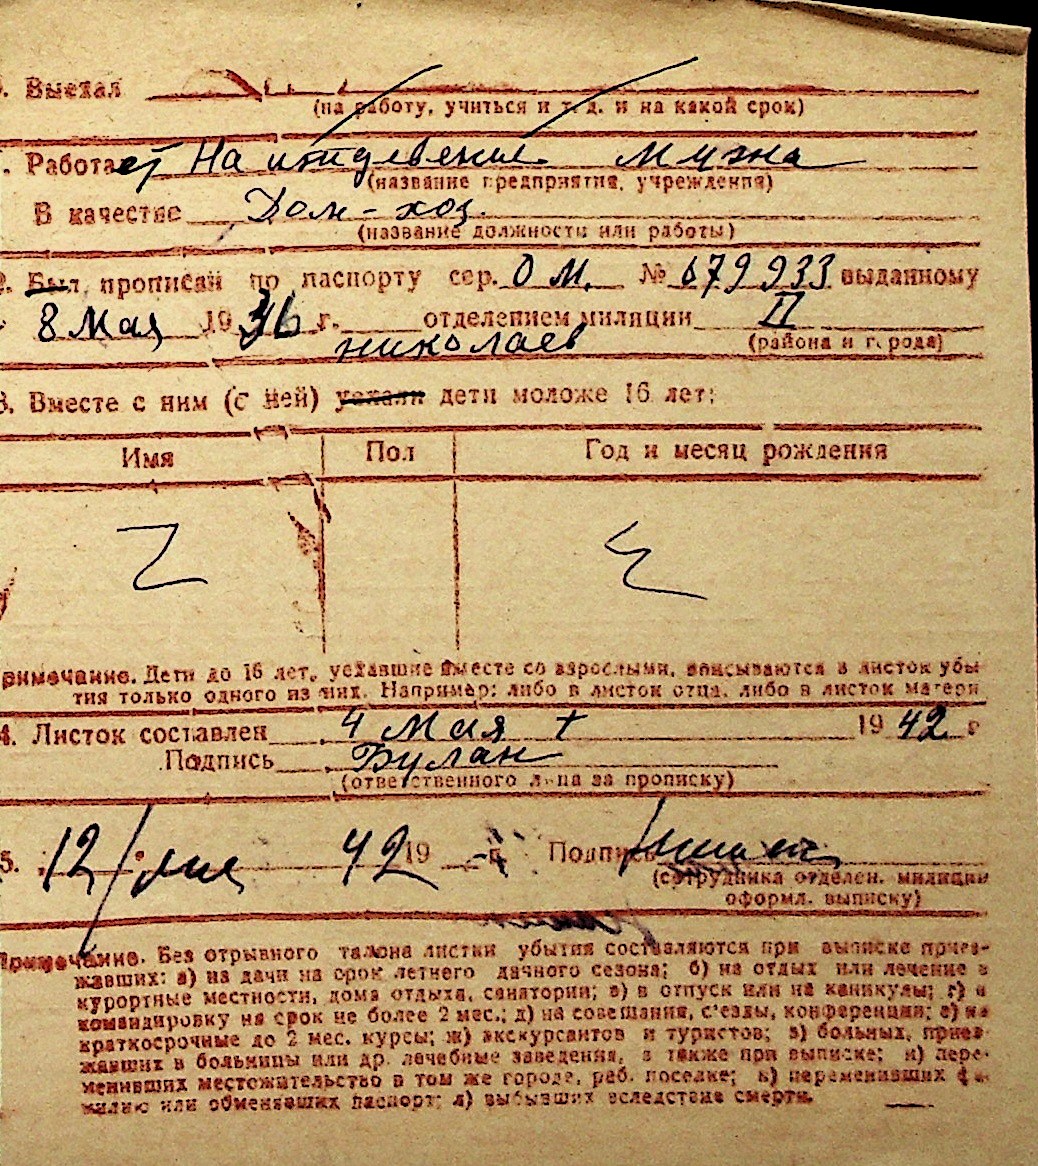 . Выехал
(на работу, учиться и т. д. и на какой срок)
. Работает На иждевение мужа
(название предприятия, учреждения)
В качестве Дом-хоз.
(название должности или работы)
2. Был прописан по паспорту сер. О М. № 679933 выданному
8 Мая 1936 г. отделением милиции II
николаев (района и города)
3. Вместе с ним (с ней) уехали дети моложе 16 лет:
Имя Пол Год и месяц рождения
Z
римечание. Дети до 16 лет, уехавшие вместе со взрослыми, вписываются в листок убы
тия только одного из них. Например: либо в листок отца, либо в листок матери
4. Листок составлен 4 Мая + 1942 г
Подпись Булан
(ответственного лица за прописку)
5. 12/ 42 19 г. Подпись
(сотрудника отделен. милиции
оформл. выписку)
Примечание. Без отрывного талона листки убытия составляются при выписке приез-
жавших: а) на дачи на срок летнего дачного сезона; б) на отдых или лечение в
курортные местности, дома отдыха, санатории; в) в отпуск или на каникулы; г) в
командировку на срок не более 2 мес.; д) на совещания, с'езды, конференции; е) на
краткосрочные до 2 мес. курсы; ж) экскурсантов и туристов; з) больных, приез-
жавших в больницы или др. лечебные заведения, а также при выписке; и) пере-
менивших местожительство в том же городе, раб. поселке; к) переменивших фа-
милию или обменявших паспорт; л) выбывших вследствие смерти.